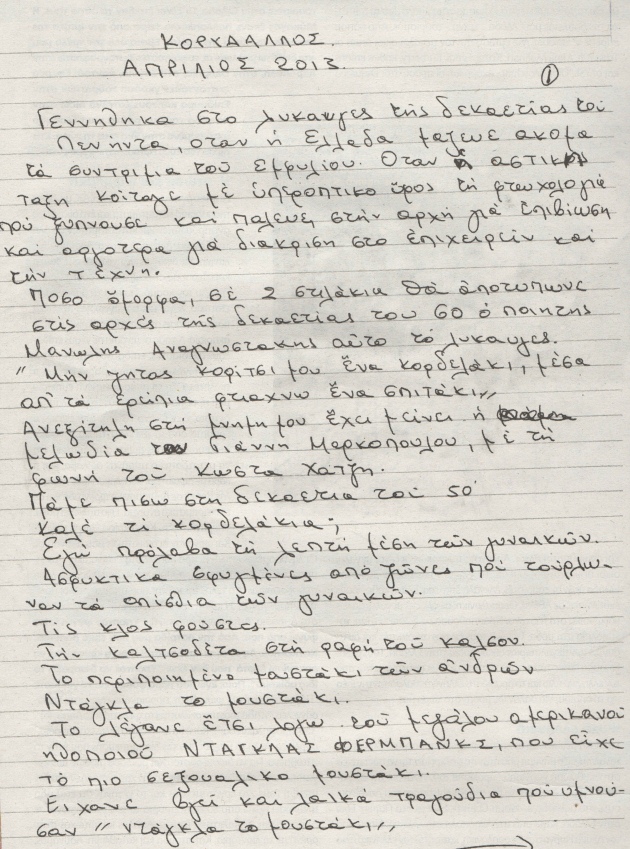 ΚΟΡΥΔΑΛΛΟΣ.
ΑΠΡΙΛΙΟΣ 2013.
1
Γεννηθηκα στο λυκαυγες τῆς δεκαετίας τοῦ
Πενήντα, οταν ἡ Ελλαδα μαζευε ακομα
τὰ συντριμια τοῦ εμφυλίου. Οταν ἡ αστικη
ταξη κοίταγε μὲ ὑπεροπτικο ὕφος τὴ φτωχολογιά
ποὺ ξυπνουσε και παλευε στὴν αρχὴ γιὰ ἐπιβίωση
και αργοτερα γιὰ διακριση στο ἐπιχειρεῖν και
τὴν τέχνη.
Ποσο ὄμορφα, σὲ 2 στιλάκια θὰ ἀποτυπωνε
στὶς αρχὲς τῆς δεκαετίας του 60 ὁ ποιητης
Μανωλης Αναγνωστακης αὐτο τὸ λυκαυγες.
" Μὴν ζητας κορίτσι μου ἕνα κορδελάκι, μέσα
απ' τὰ ερείπια φτιαχνω ἕνα σπιτάκι,,
Ανεξίτηλη στὴ μνημη μου ἔχει μείνει ἡ
μελωδία του Γιαννη Μαρκοπουλου, μὲ τὴ
φωνὴ τοῦ Κωστα Χατζη.
Πάμε πισω στη δεκαετια τοῦ 50'
Καλὲ τὶ κορδελάκια;
Εγὼ πρόλαβα τὴ λεπτὴ μέση τῶν γυναικῶν.
Ασφυκτικα σφιγμένες από ζῶνες ποὺ τούρλω-
ναν τὰ οπίσθια τῶν γυναικῶν.
Τὶς κλος φούστες.
Τὴν καλτσοδέτα στὴ ραφὴ τοῦ καλσον.
Το περιποιημένο μουστάκι τῶν ἀνδρῶν
Ντάγκλα το μουστάκι.
Το λέγανε ἔτσι λογω τοῦ μεγάλου αμερικανοῦ
ηθοποιοῦ ΝΤΑΓΚΛΑΣ ΦΕΡΜΠΑΝΚΣ, που εἶχε
τὸ πιο σεξουαλικο μουστάκι.
Ειχανε βγεῖ και λαϊκὰ τραγούδια ποὺ υμνού-
σαν " ντάγκλα το μουστάκι,,